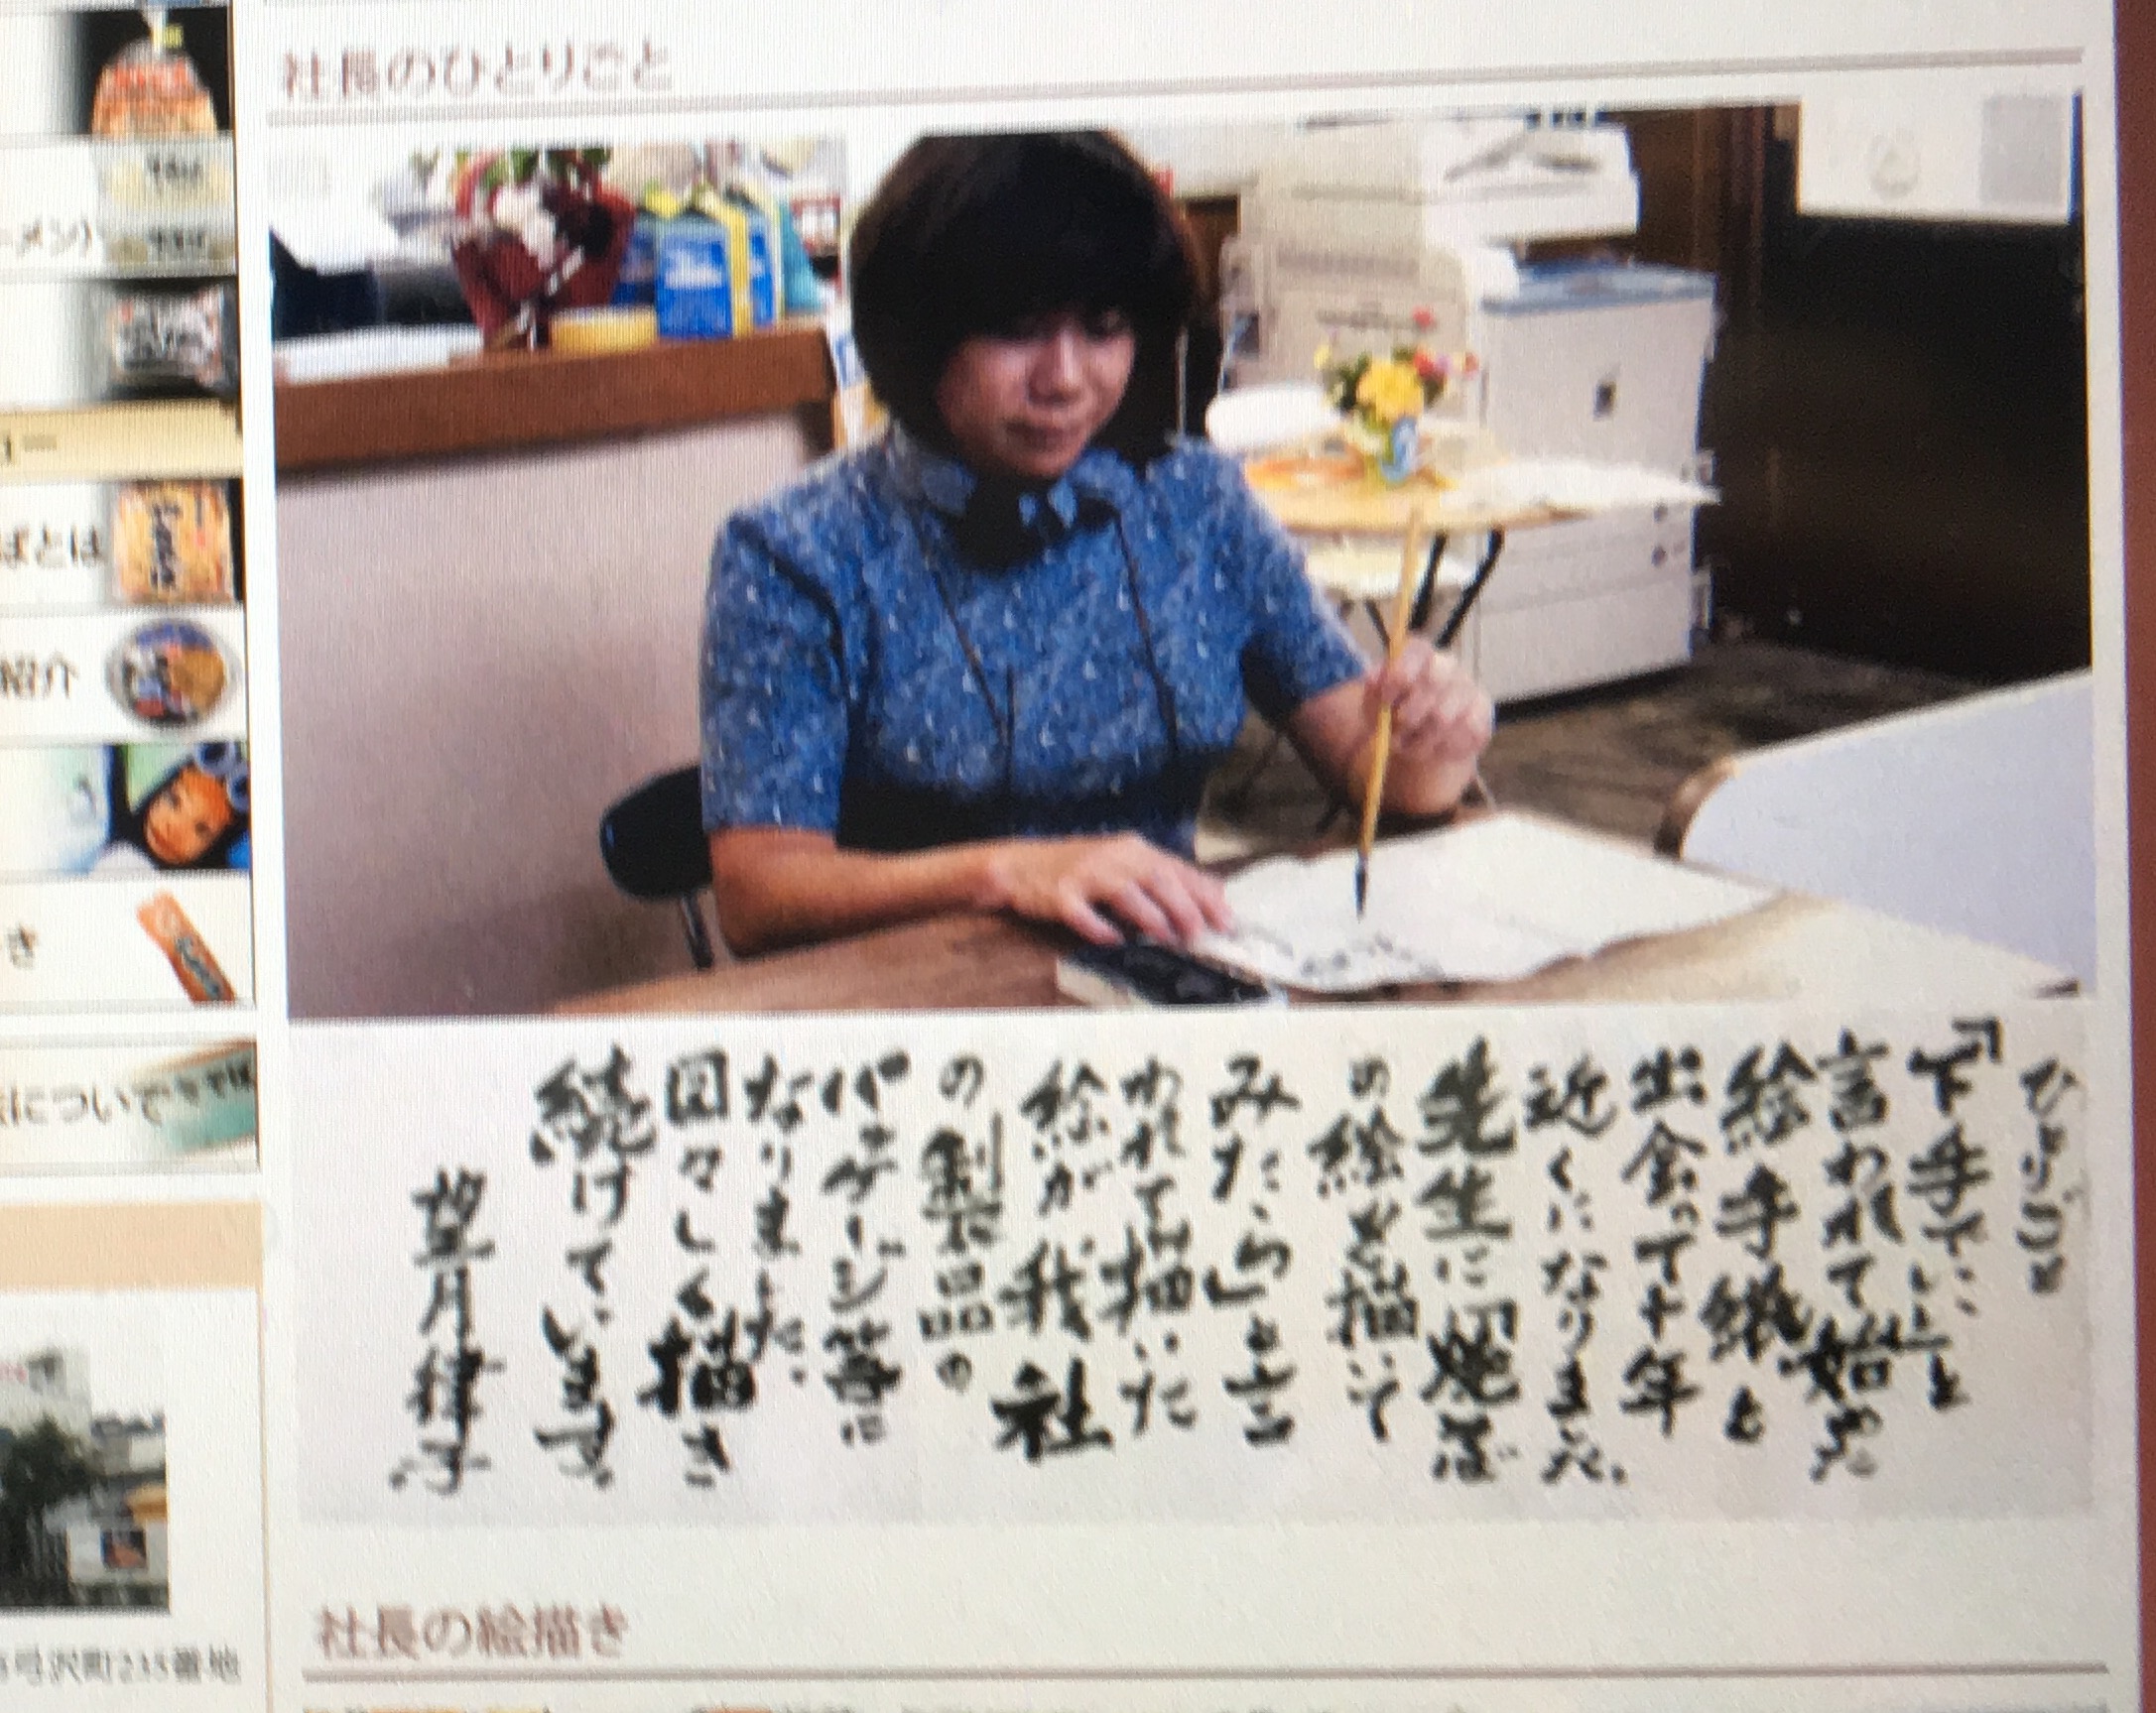 社長のひとりごと
ーメン)
ばとは
紹介
き
について
弓沢町215番地
ひとりごと
「下手でいいと
言われて始めた
絵手紙と
出会って十年
近くになりました。
先生に「焼そば
の絵を描いて
みたら」と言
われて描いた
絵が我社
の製品の
パッケージ等に
なりました。
図々しく描き
続けています。
望月律子
社長の絵描き